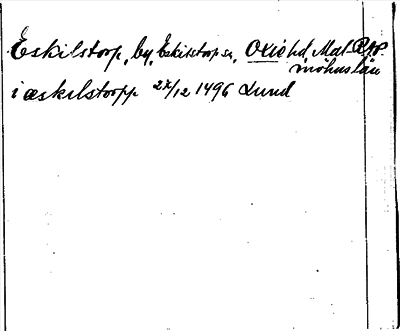 Eskilstorp, by, Eskilstorp sn, Oxie hd, Mal
möhus län
i æskilstorpp 27/12 1496 Lund